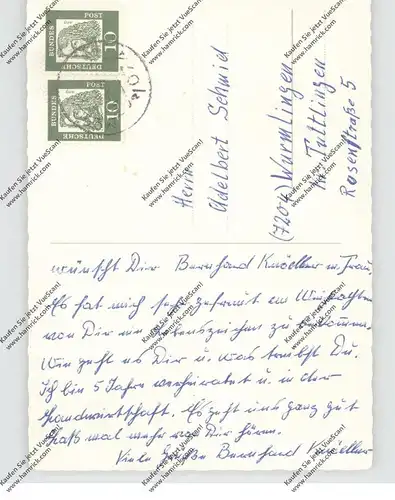 DEUTSCHE BUNDESPOST
10
DEUTSCHE BUNDESPOST
10
Herrn
Adelbert Schmid
(7204) Wurmlingen
Kr. Tuttlingen
Rosenstraße 5
wünscht Dir Bernhard Knödler u. Frau.
Es hat mich sehr gefreut an Weihnachten
von Dir ein Lebenszeichen zu bekommen.
Wie geht es Dir u. was treibst Du.
Ich bin 5 Jahre verheiratet u. in der
Landwirtschaft. Es geht uns ganz gut
Laß mal mehr von Dir hören.
Viele Grüße Bernhard Knödler
Kaufen Sie jetzt VueScan!
www.hamrick.com